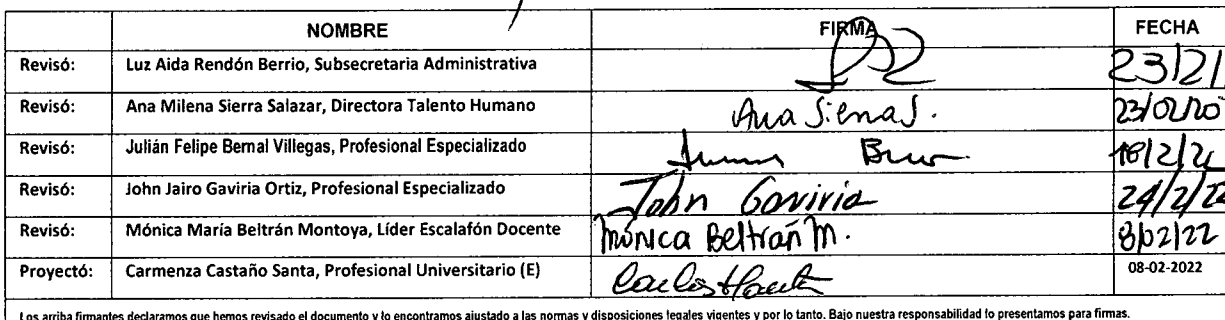 NOMBRE FIRMA FECHA
Revisó: Luz Aida Rendón Berrio, Subsecretaria Administrativa
Revisó: Ana Milena Sierra Salazar, Directora Talento Humano Ana Sierra S. 23/02/20
Revisó: Julián Felipe Bernal Villegas, Profesional Especializado
Revisó: John Jairo Gaviria Ortiz, Profesional Especializado John Gaviria 24/2/22
Revisó: Mónica María Beltrán Montoya, Líder Escalafón Docente Mónica Beltrán M. 8/02/22
Proyectó: Carmenza Castaño Santa, Profesional Universitario (E) 08-02-2022
Los arriba firmantes declaramos que hemos revisado el documento y lo encontramos ajustado a las normas y disposiciones legales vigentes y por lo tanto. Bajo nuestra responsabilidad lo presentamos para firmas.